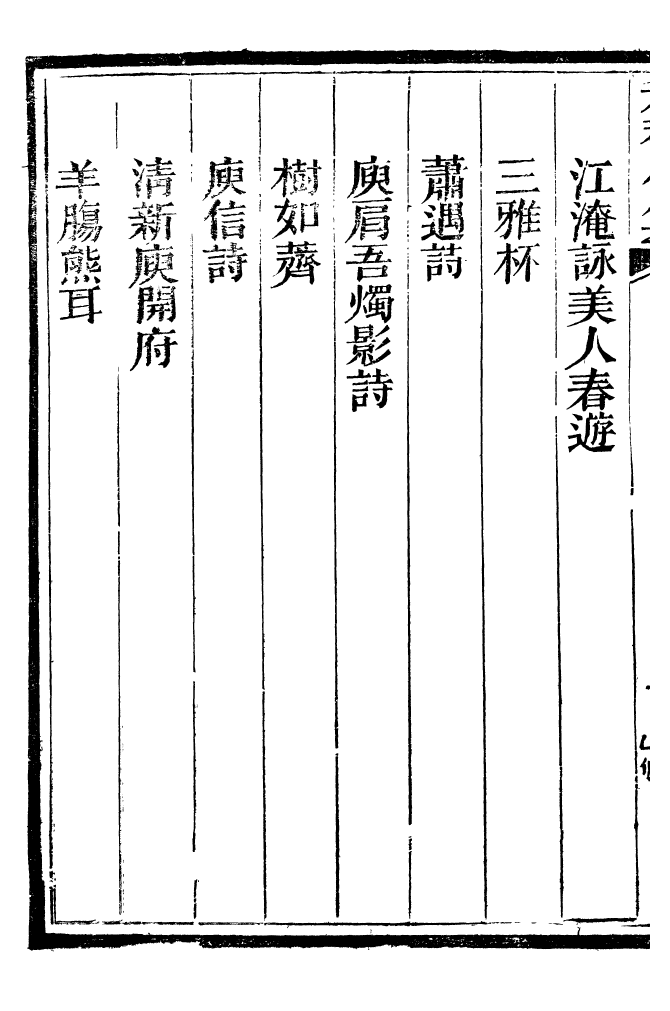 江淹詠美人春遊
三雅杯
蕭遇詩
庾肩吾燭影詩
樹如薺
庾信詩
清新庾開府
羊膓熊耳